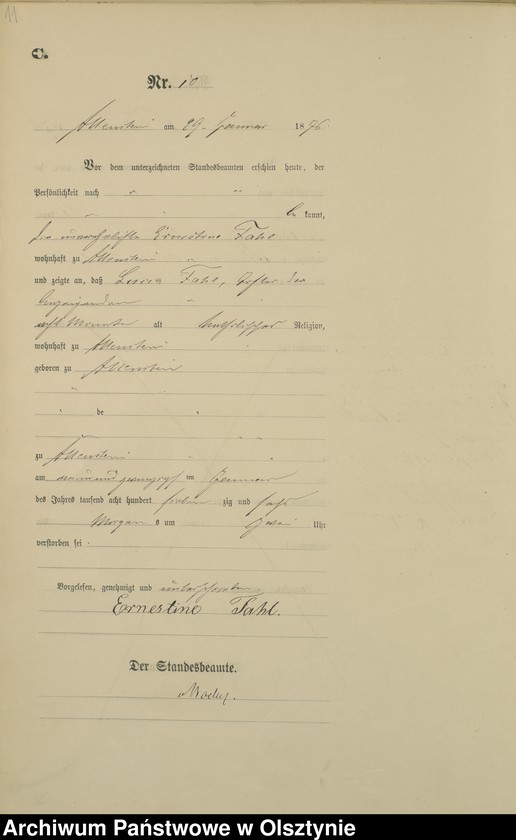 11
C.
Nr. 10
Allenstein am 29. Januar 1876.
Vor dem unterzeichneten Standesbeamten erschien heute, der
Persönlichkeit nach
be kannt,
die unverehelichte Ernestine Fahl
wohnhaft zu Allenstein
und zeigte an, daß Fahl, Tochter der
Anzeigenden
acht Monate alt katholischer Religion,
wohnhaft zu Allenstein
geboren zu Allenstein
be
zu Allenstein
am neunundzwanzigsten Januar
des Jahres tausend acht hundert sieben zig und sechs
Morgens um zwei Uhr
verstorben sei.
Vorgelesen, genehmigt und unterschrieben
Ernestine Fahl.
Der Standesbeamte.
Archiwum Państwowe w Olsztynie